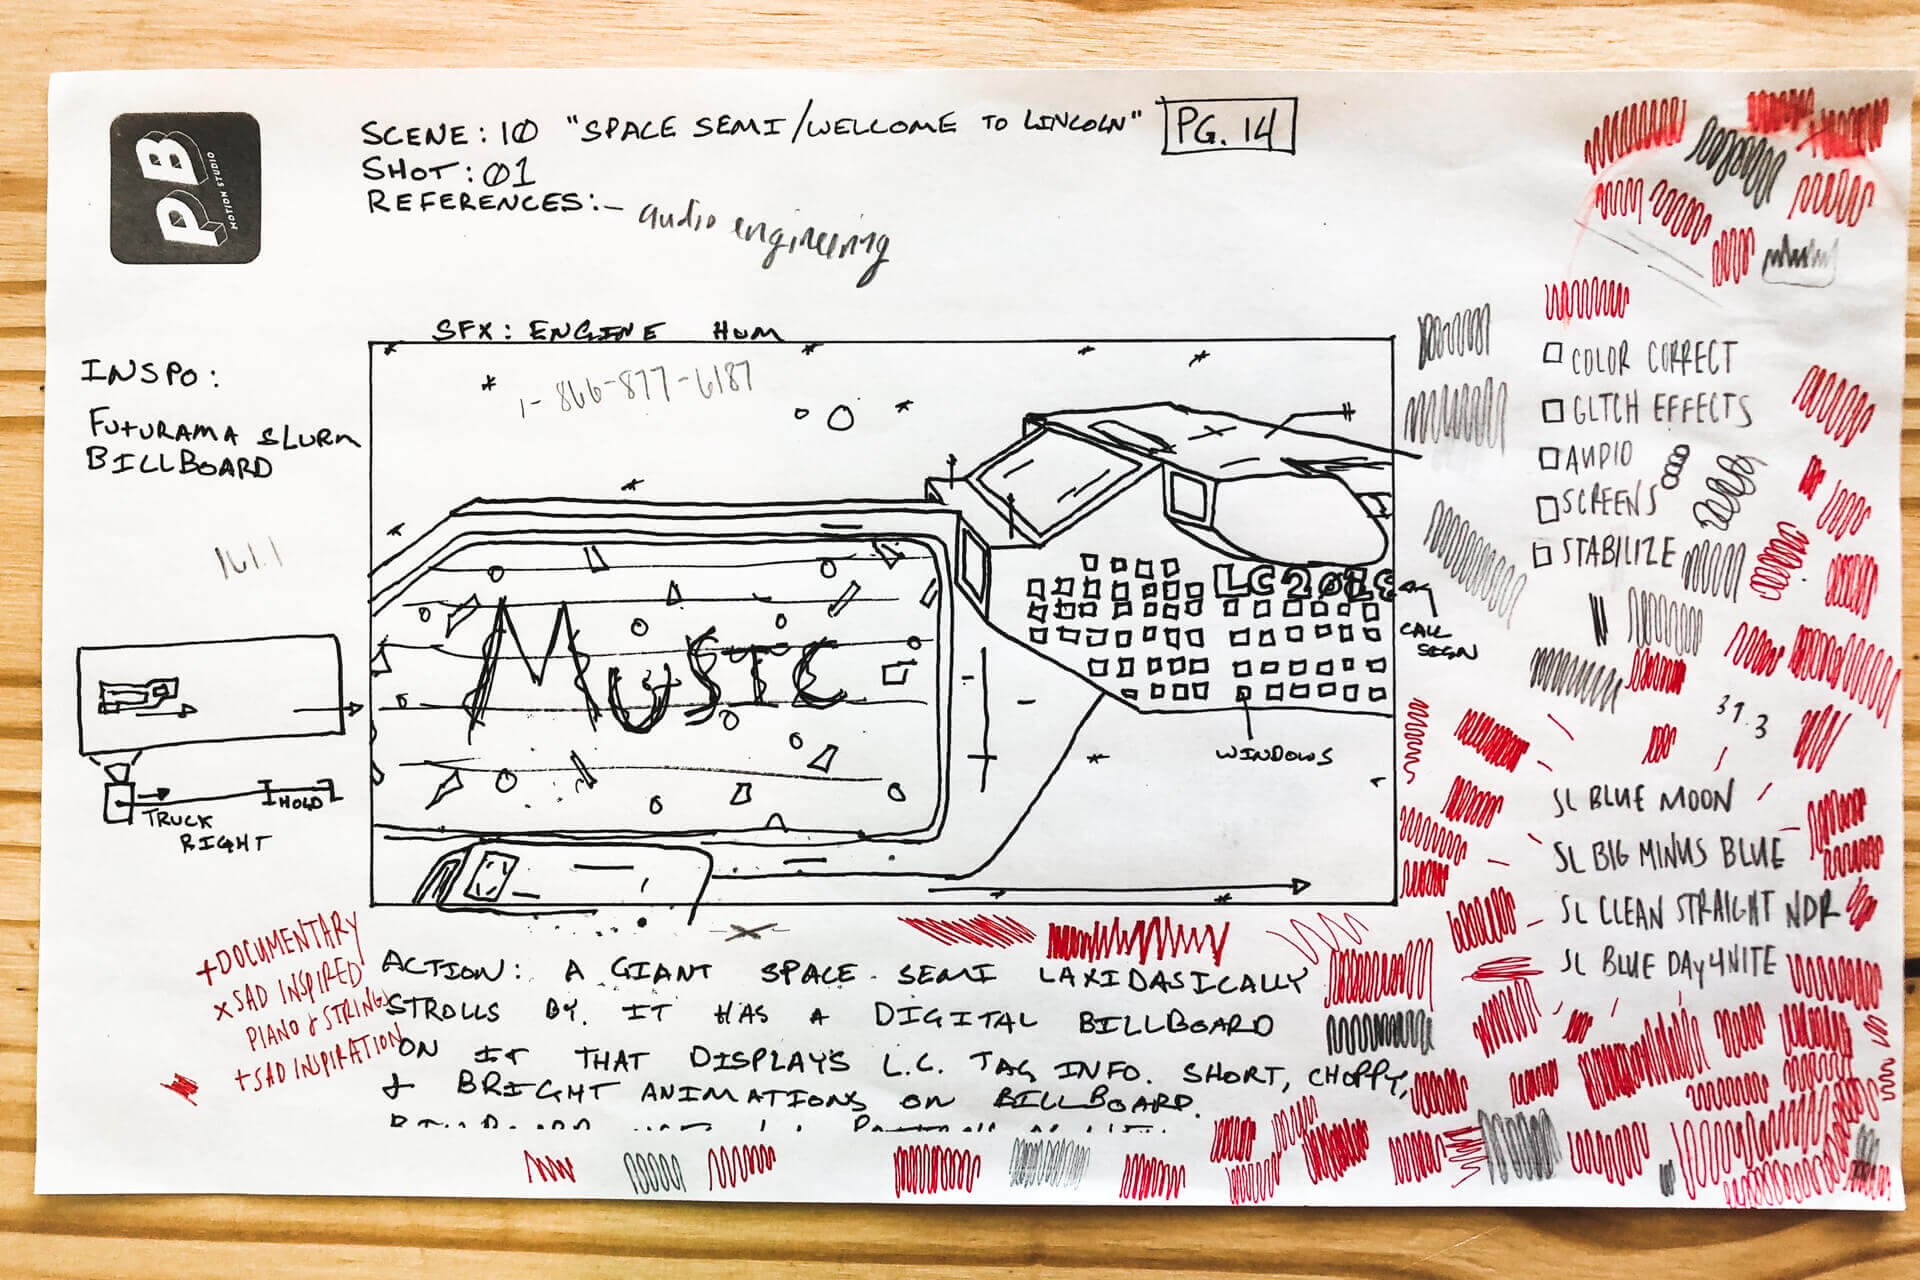 PB
MOTION STUDIO
SCENE: 10 "SPACE SEMI/WELLCOME TO LINCOLN" PG. 14
SHOT: 01
REFERENCES:- audio engineering
SFX: ENGINE HUM
1-866-877-6187
INSPO:
FUTURAMA SLURM
BILLBOARD
161.1
MUSIC
LC2018
CALL
SIGN
WINDOWS
HOLD
TRUCK
RIGHT
COLOR CORRECT
GLTCH EFFECTS
AUDIO
SCREENS
STABILIZE
31.3
SL BLUE MOON
SL BIG MINUS BLUE
SL CLEAN STRAIGHT NDR
SL BLUE DAY4NITE
+DOCUMENTARY
xSAD INSPIRED
PIANO & STRINGS
+SAD INSPIRATION
ACTION: A GIANT SPACE SEMI LAXIDASICALLY
STROLLS BY. IT HAS A DIGITAL BILLBOARD
ON IT THAT DISPLAYS L.C. TAG INFO. SHORT, CHOPPY,
& BRIGHT ANIMATIONS ON BILLBOARD.